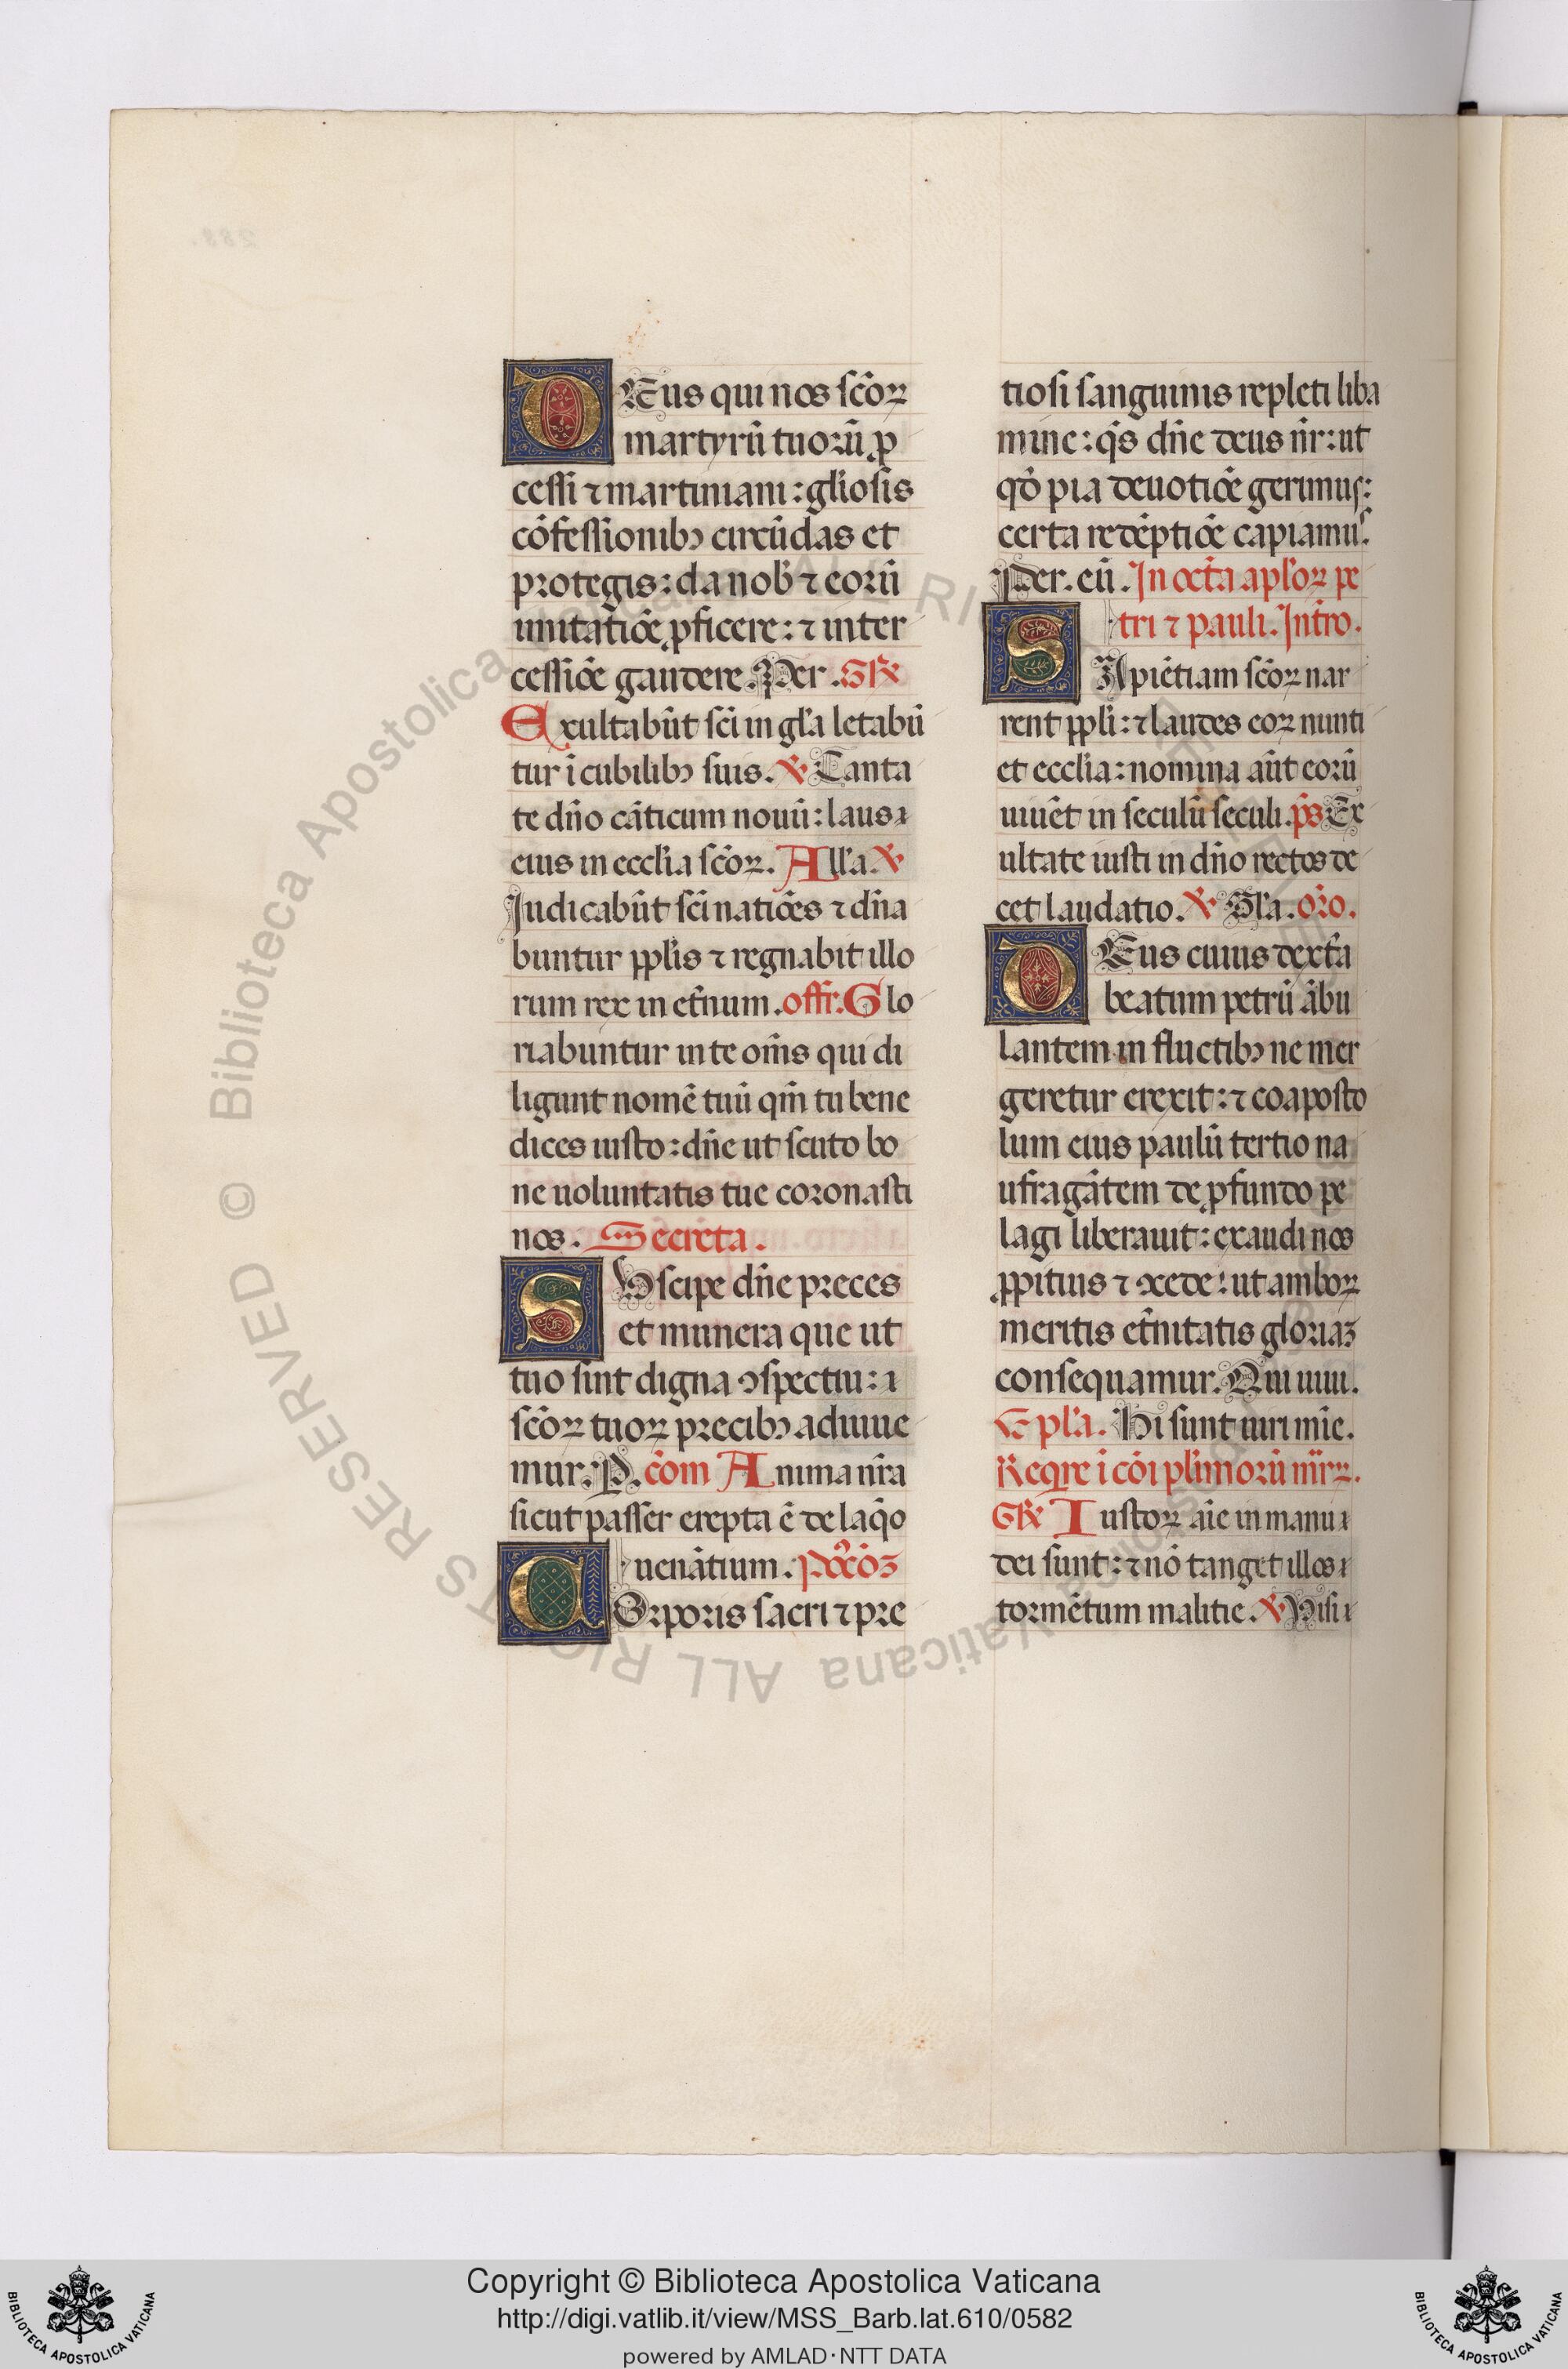 DEus qui nos sc̄oꝝ
martyrū tuorū ꝓ
cessi ⁊ martiniani : gl̓iosis
cōfessionibꝫ circūdas et
protegis : da nob̓ ⁊ eorū
imitatiōe ꝓficere : ⁊ inter
cessiōe gaudere . Per . Gr̄
Exultabūt sc̄i in gl̓a letabū
tur ī cubilibꝫ suis . ℣ Canta
te dn̄o cāticum nouū : laus
eius in eccl̓ia sc̄oꝝ . All̓a . ℣
Judicabūt sc̄i natiōes ⁊ dn̄a
buntur ppl̓is ⁊ regnabit illo
rum rex in et̄num . offr̄ . Glo
riabuntur in te om̄s qui di
ligunt nomē tuū qm̄ tu bene
dices iusto : dn̄e ut scuto bo
ne uoluntatis tue coronasti
nos . Secreta .
SUscipe dn̄e preces
et munera que ut
tuo sint digna ꝯspectui :
sc̄oꝝ tuoꝝ precibꝫ adiuue
mur : P . cōm Anima nr̄a
sicut passer erepta ē de laq̄o
uenātium . Poꝯ̄oꝫ
COrporis sacri ⁊ pre
tiosi sanguinis repleti liba
mine : qs̄ dn̄e deus nr̄ : ut
qd̄ pia deuotiōe gerimus :
certa redēptiōe capiamus .
Per . eū . In oct̄a apl̓oꝝ pe
tri ⁊ pauli . Intro .
SApiētiam sc̄oꝝ nar
rent ppl̓i : ⁊ laudes eoꝝ nunti
et eccl̓ia : nomina aūt eorū
uiuēt in seculū seculi . ps̄ Ex
ultate iusti in dn̄o rectos de
cet laudatio . ℣ Gl̓a . or̄o .
DEus cuius dext̄a
beatum petrū ābu
lantem in fluctibꝫ ne mer
geretur erexit : ⁊ coaposto
lum eius paulū tertio na
ufragātem de ꝓfundo pe
lagi liberauit : exaudi nos
ꝓpitius ⁊ ꝯcede : ut amboꝝ
meritis et̄nitatis gloriaꝫ
consequamur . Qui uiui .
Epl̓a . Hi sunt uiri mīe .
Reqr̄e ī cōi pl̓imorū mr̄ꝝ .
Gr̄ Iustoꝝ aīe in manu
dei sunt : ⁊ nō tanget illos
tormētum malitie . ℣ Uisi
Copyright © Biblioteca Apostolica Vaticana
http://digi.vatlib.it/view/MSS_Barb.lat.610/0582
powered by AMLAD·NTT DATA
BIBLIOTECA APOSTOLICA VATICANA
BIBLIOTECA APOSTOLICA VATICANA